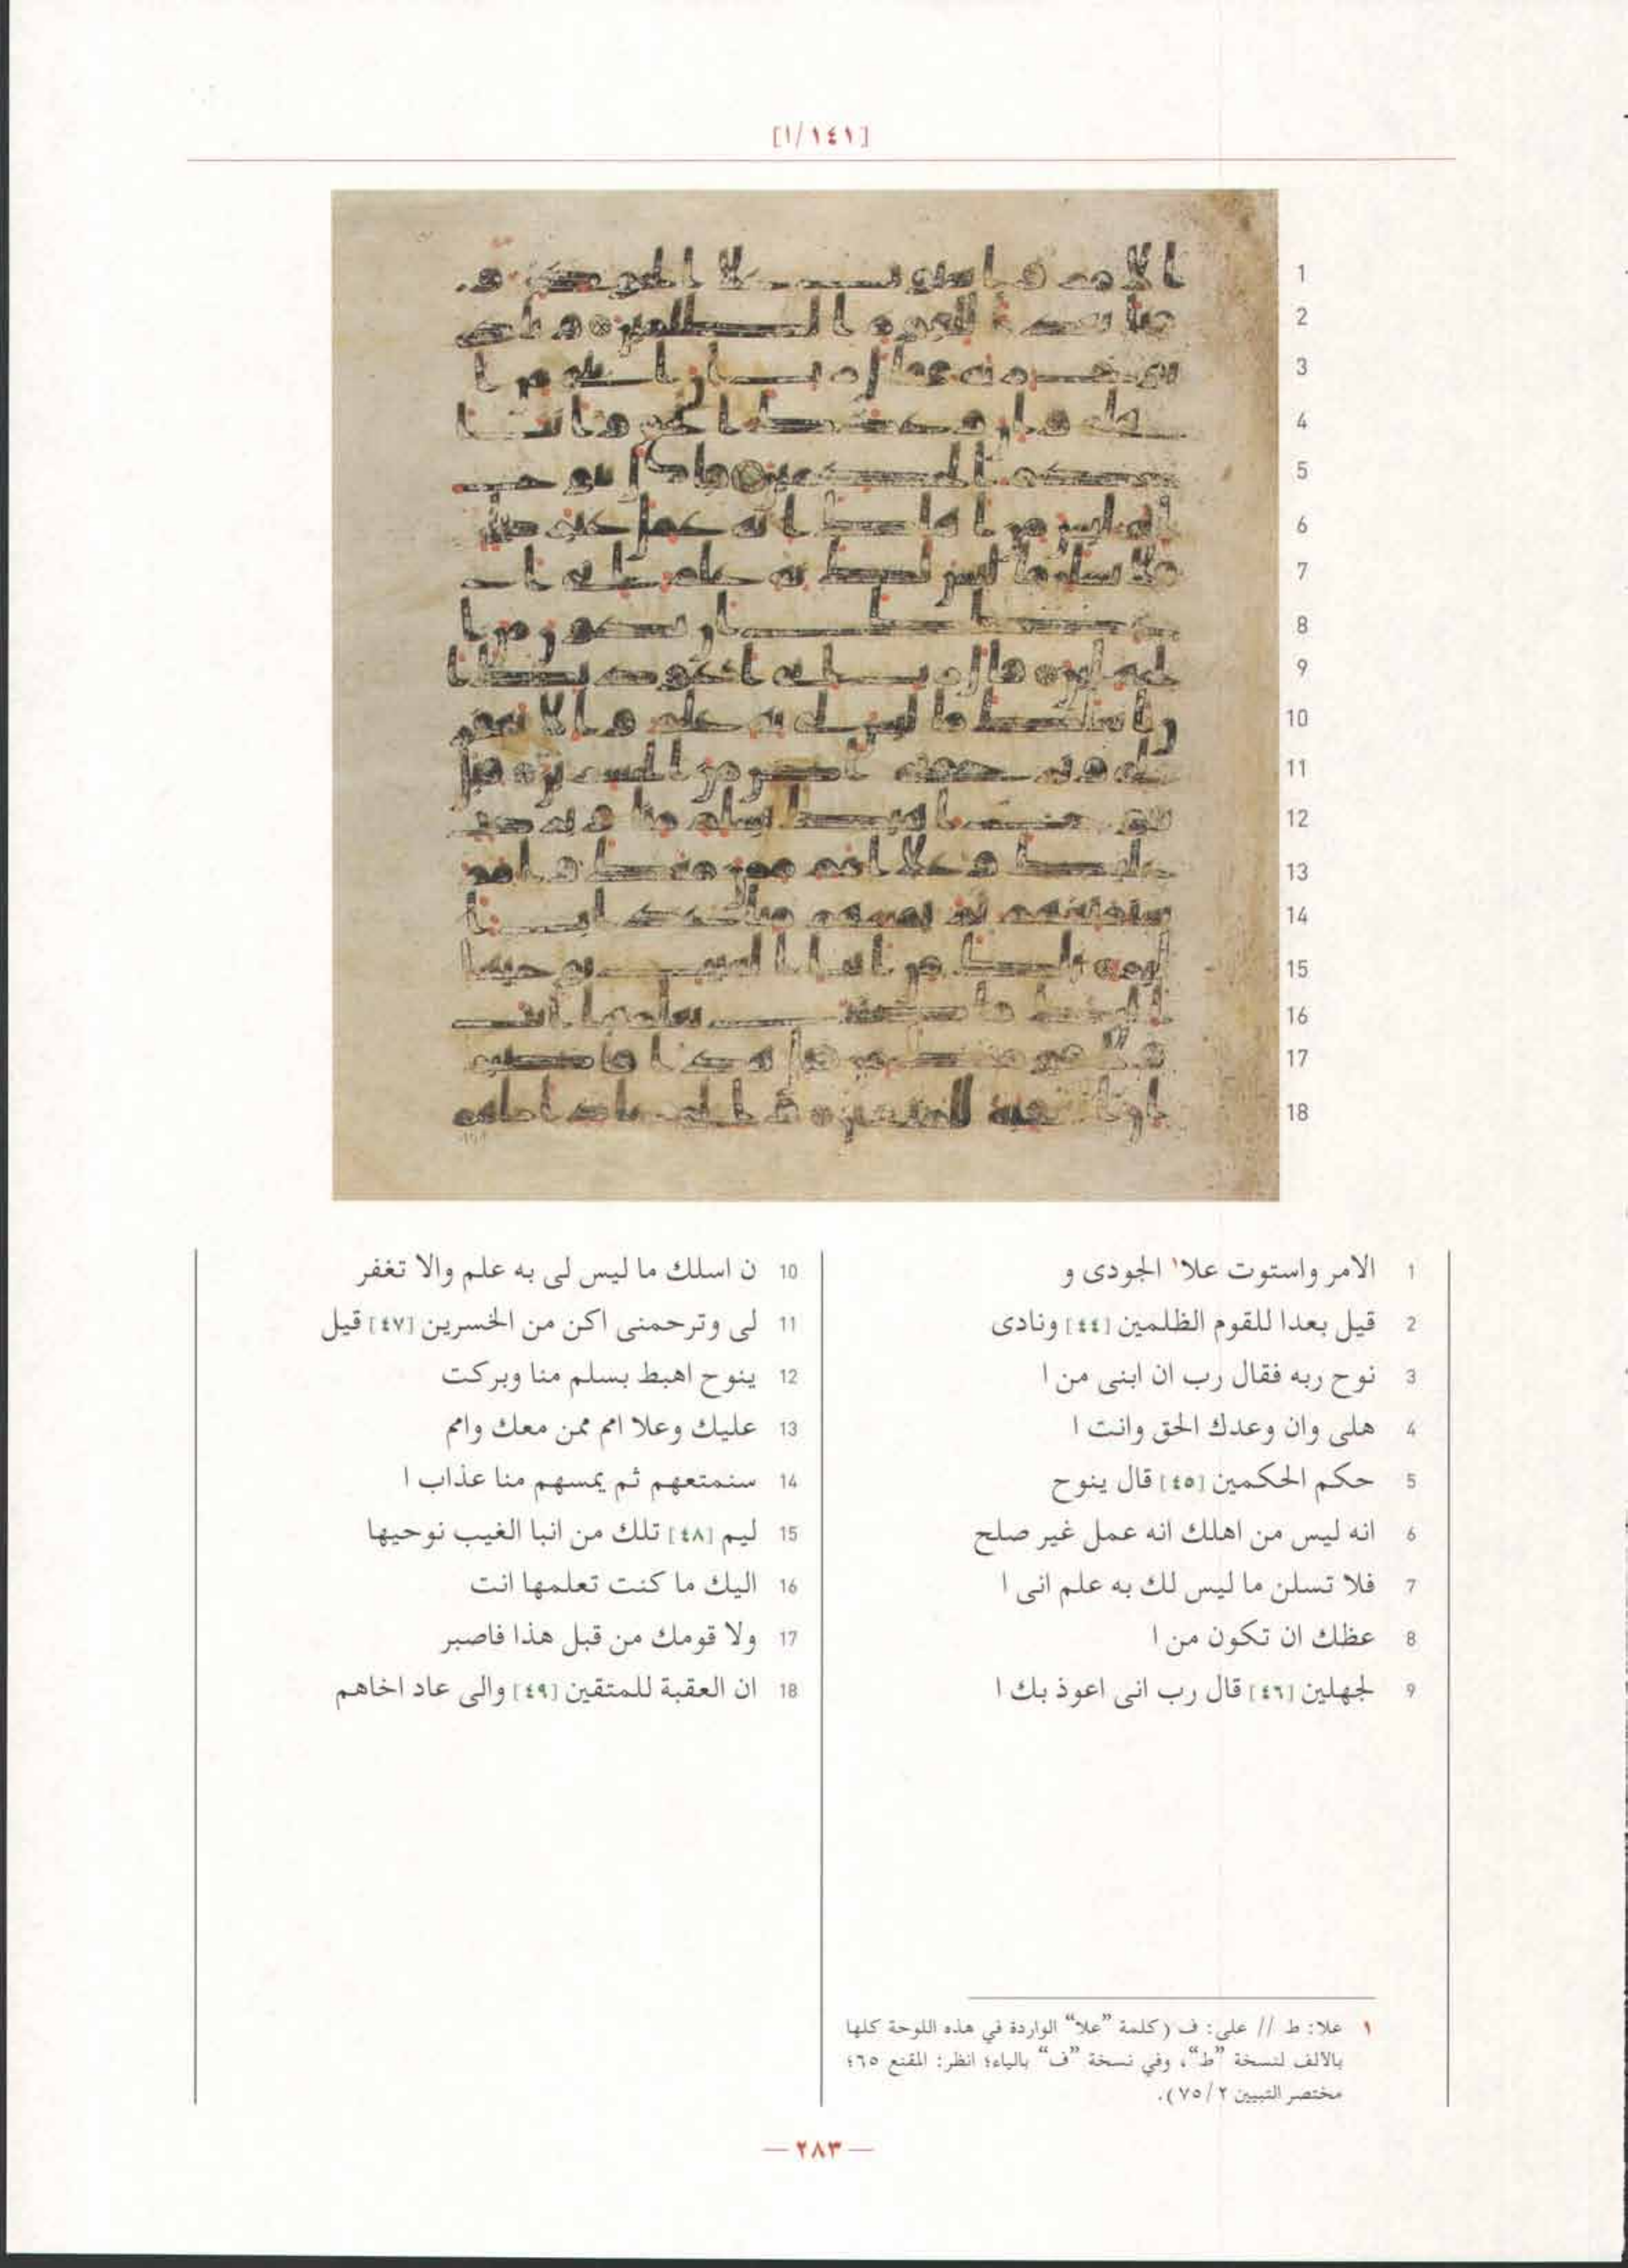 [١/١٤١]
1 الامر واستوت علا١ الجودى و
2 قيل بعدا للقوم الظلمين [٤٤] ونادى
3 نوح ربه فقال رب ان ابنى من ا
4 هلى وان وعدك الحق وانت ا
5 حكم الحكمين [٤٥] قال ينوح
6 انه ليس من اهلك انه عمل غير صلح
7 فلا تسلن ما ليس لك به علم انى ا
8 عظك ان تكون من ا
9 لجهلين [٤٦] قال رب انى اعوذ بك ا
10 ن اسلك ما ليس لى به علم والا تغفر
11 لى وترحمنى اكن من الخسرين [٤٧] قيل
12 ينوح اهبط بسلم منا وبركت
13 عليك وعلا امم ممن معك وامم
14 سنمتعهم ثم يمسهم منا عذاب ا
15 ليم [٤٨] تلك من انبا الغيب نوحيها
16 اليك ما كنت تعلمها انت
17 ولا قومك من قبل هذا فاصبر
18 ان العقبة للمتقين [٤٩] والى عاد اخاهم
١ علا: ط // على: ف (كلمة "علا" الواردة في هذه اللوحة كلها
بالألف لنسخة "ط"، وفي نسخة "ف" بالياء؛ انظر: المقنع ٦٥؛
مختصر التبيين ٢/٧٥).
— ٢٨٣ —